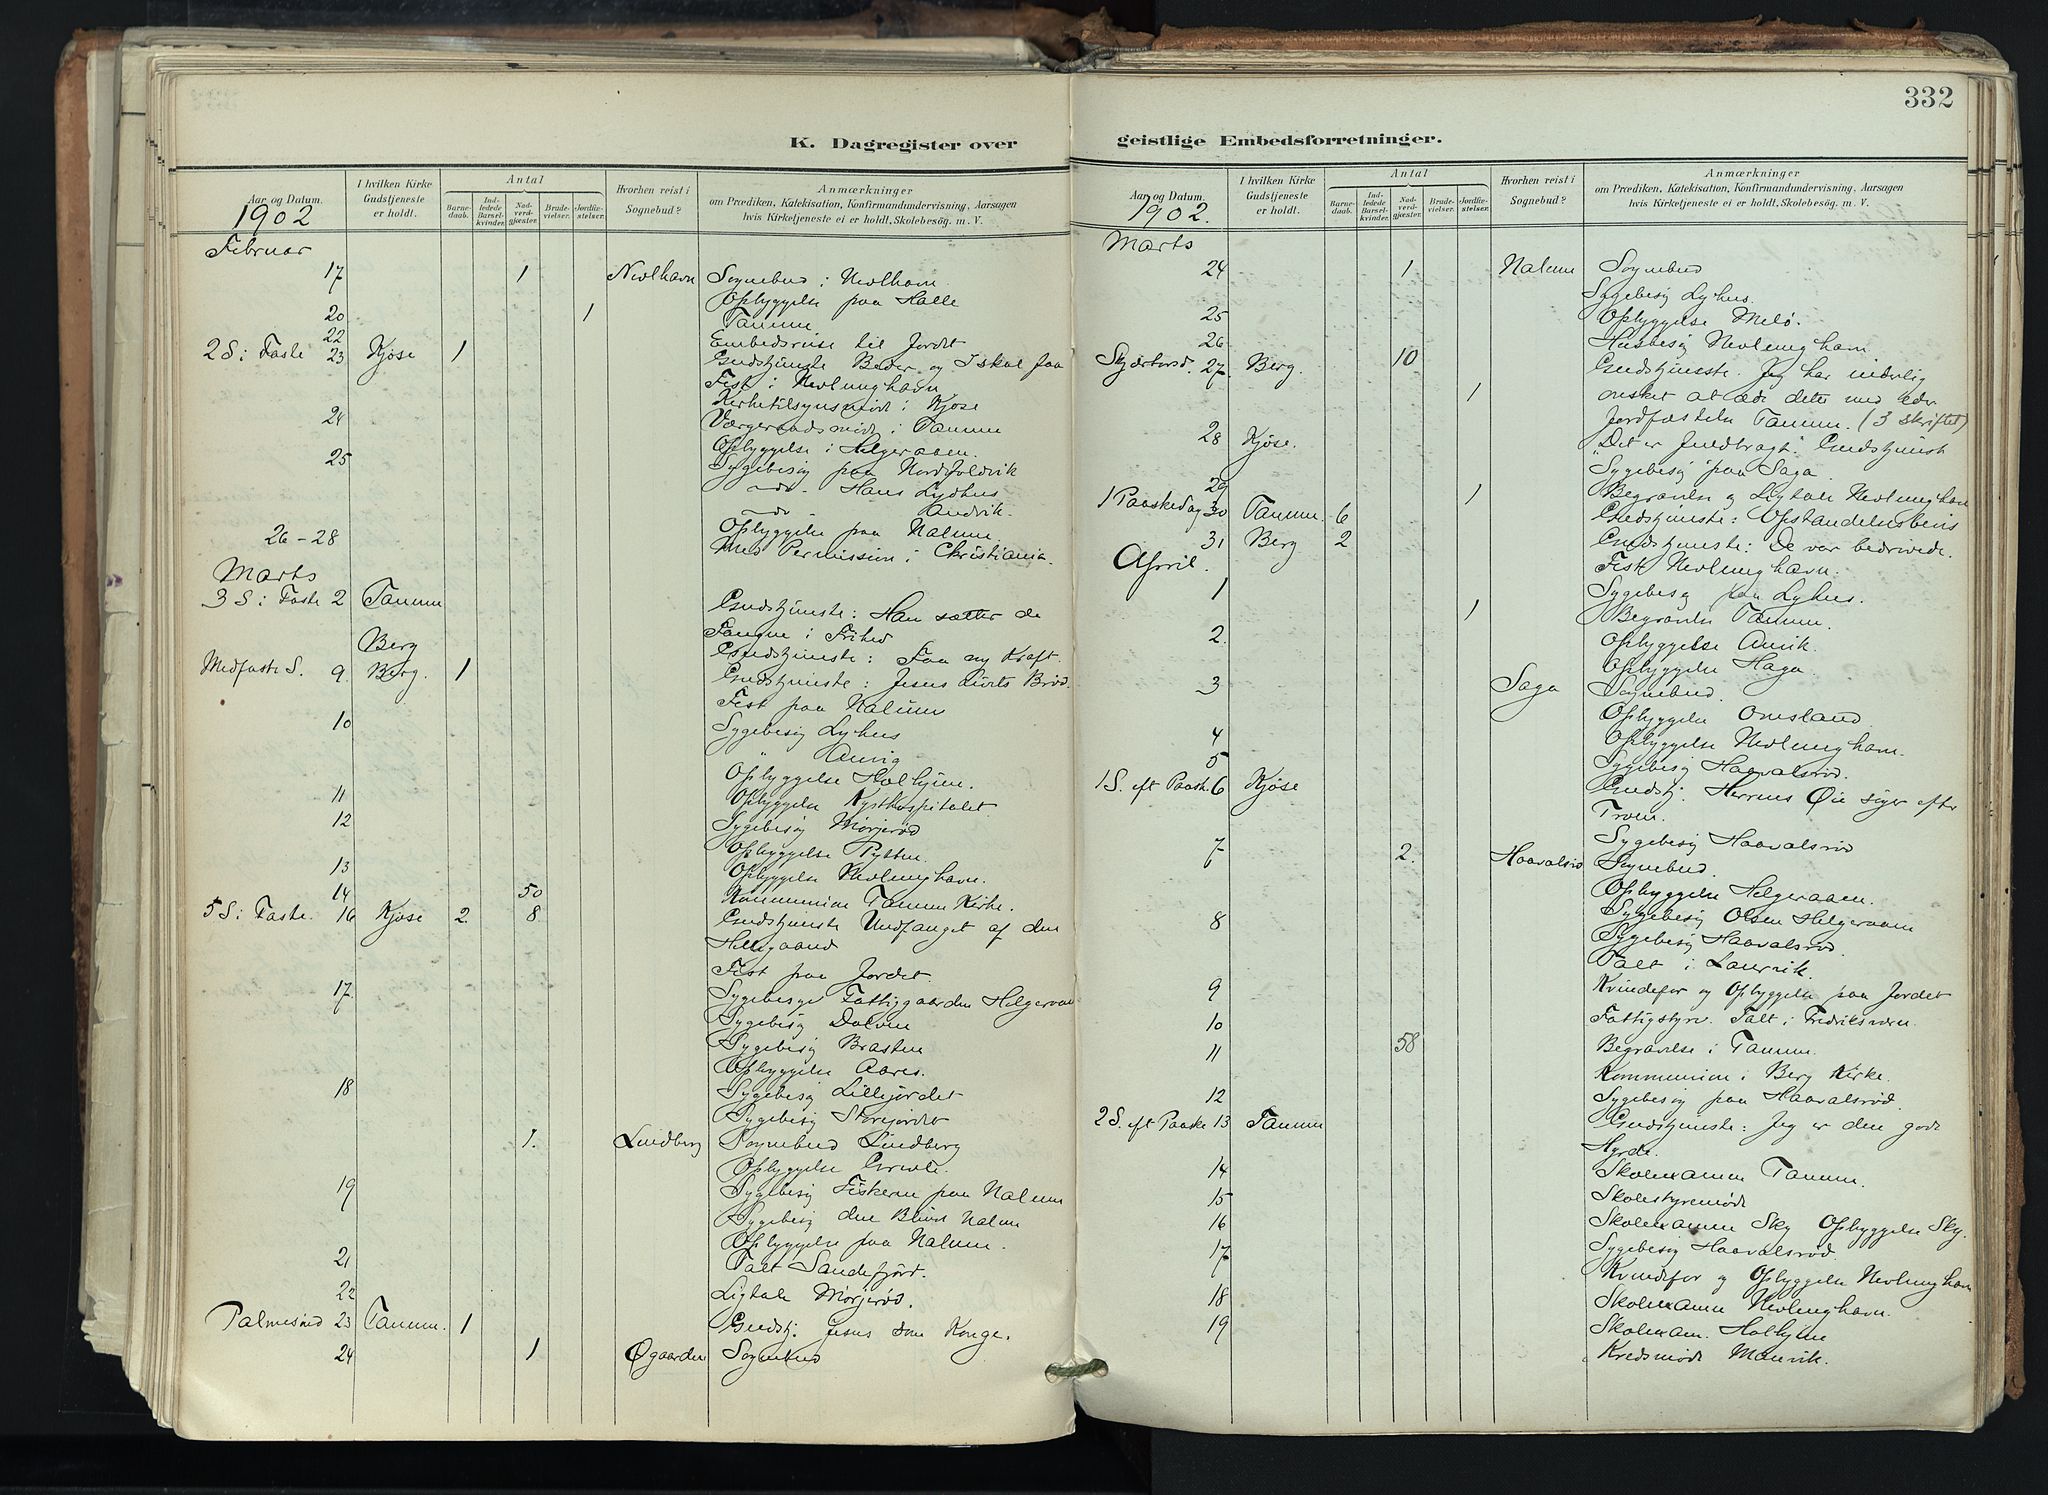 332
K. Dagregister over geistlige Embedsforretninger.
Aar og Datum. I hvilken Kirke Gudstjeneste er holdt. Antal Barnedaab. Indledede Barselkvinder. Nadverdgjester. Brudevielser. Jordfæstelser. Hvorhen reist i Sognebud? Anmærkninger om Prædiken, Katekisation, Konfirmandundervisning, Aarsagen hvis Kirketjeneste ei er holdt, Skolebesøg. m. V.
1902
Februar
17 1 Nevlhavn Sognebud i Nevlhavn
Opbyggelse paa Halle
20 1 Tanum
22 Embedsreise til Jordet
2 S. i Faste 23 Kjøse 1 Gudstjeneste Beder og I skal faa
Fest i Nevlunghavn
Kirketilsynsmøde i Kjose
24 Værgeraadsmøde i Tanum
Opbyggelse i Helgeraaen.
25 Sygebesøg paa Nordfoldvik
- do - Hans Lydhus
- do - Andvik.
Opbyggelse paa Nalum
26-28 Med Permission i Christiania.
Marts
3 S. i Faste 2 Tanum Gudstjeneste: Han sætter de
Fangne i Frihed
Berg Gudstjeneste: Faa ny Kraft.
Midfaste S. 9. Berg. 1 Gudstjeneste: Jesus Livets Brød.
Fest paa Nalum
10 Sygebesøg Lyhus
" Anvig
Opbyggelse Holhjem.
11 Opbyggelse Kysthospitalet.
12 Sygebesøg Mørjerød
Opbyggelse Pytten.
13 Opbyggelse Nevlunghavn.
14 50 Kommunion Tanum Kirke.
5 S. i Faste. 16 Kjøse 2. 8 Gudstjeneste Undfanget af den
Helligaand
Fest paa Jordet.
17. Sygebesøg Fattiggaarden Helgeraaen
Sygebesøg Dolven
Sygebesøg Brasten
Opbyggelse Aares.
18 Sygebesøg Lillejordet
Sygebesøg Storejordet
1. Lindberg Sognebud Lindberg
Opbyggelse
19 Sygebesøg Fiskern paa Nalum
Sygebesøg den Blinde Nalum
Opbyggelse paa Nalum.
21 Talt Sandefjord.
22 Ligtale Mørjerød.
Palmesønd 23 Tanum. 1 Gudstj. Jesus som Konge.
24 1 Øgaarden Sognebud
Aar og Datum. I hvilken Kirke Gudstjeneste er holdt. Antal Barnedaab. Indledede Barselkvinder. Nadverdgjester. Brudevielser. Jordfæstelser. Hvorhen reist i Sognebud? Anmærkninger om Prædiken, Katekisation, Konfirmandundervisning, Aarsagen hvis Kirketjeneste ei er holdt, Skolebesøg. m. V.
1902.
Marts
24 1 Nalum Sognebud
Sygebesøg Lyhus.
25 Opbyggelse Melø.
26 Husbesøg Nevlunghavn
Skjærtorsd. 27. Berg. 10 Gudstjeneste. Jeg har inderlig
1 ønsket at æde dette med Eder
Jordfæstelse Tanum. (3 skriftet)
28 Kjøse. "Det er fuldbragt." Gudstjeneste
Sygebesøg paa Saga
29 1 Begravelse og Ligtale Nevlunghavn
1 Paaskedag 30 Tanum. 6 Gudstjeneste: Opstandelsesbevis
31 Berg 2 Gudstjeneste: De var bedrøvede.
April. Fest Nevlunghavn.
1 Sygebesøg paa Lyhus.
1 Begravelse Tanum.
2. Opbyggelse Anvik.
Opbyggelse Haga.
3 Saga Sognebud.
Opbyggelse Omsland.
4 Opbyggelse Nevlunghavn.
5 Sygebesøg Haavalsrød.
1 S. eft Paask. 6 Kjøse Gudstj. Herrens Øie siger efter
Troen.
Sygebesøg Haavalsrød
7 2. Haavalsrø Sognebud.
Opbyggelse Helgeraaen.
8 Sygebesøg Olsen Helgeraaen
Sygebesøg Haavalsrød.
Talt i Laurvik.
9 Kvindefor og Opbyggelse paa Jordet
10 Fattigstyre. Talt i Fredriksværn.
11 58 Begravelse i Tanum.
Kommunion i Berg Kirke.
12 Sygebesøg paa Haavalsrød.
2 S. eft Paaske 13 Tanum Gudstjeneste: Jeg er den gode
Hyrde.
14 Skolexamen Tanum.
15 Skolestyremøde
16 Skolexamen Sky Opbyggelse Sky.
17 Sygebesøg Haavalsrød.
Kvindefor og Opbyggelse Nevlunghavn
18 Skolexamen Nevlunghavn.
19 Skolexam. Holhjem
Kredsmøde Manvik.